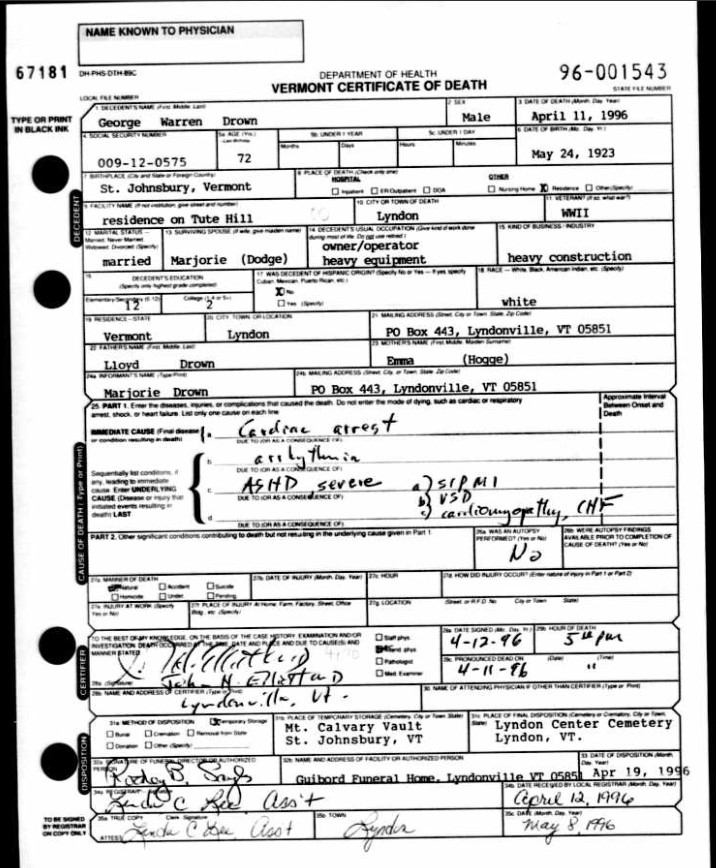 NAME KNOWN TO PHYSICIAN
67181 DH-PHS-DTH-89C
DEPARTMENT OF HEALTH
VERMONT CERTIFICATE OF DEATH
96-001543
LOCAL FILE NUMBER
STATE FILE NUMBER
TYPE OR PRINT IN BLACK INK
1 DECEDENT'S NAME (First, Middle, Last) 2 SEX 3 DATE OF DEATH (Month, Day, Year)
George Warren Drown Male April 11, 1996
4 SOCIAL SECURITY NUMBER 5a AGE (Yrs.) 5b UNDER 1 YEAR 5c UNDER 1 DAY 6 DATE OF BIRTH (Mo. Day, Yr.)
Months Days Hours Minutes
009-12-0575 72 May 24, 1923
7 BIRTHPLACE (City and State or Foreign Country) 8 PLACE OF DEATH (Check only one)
HOSPITAL OTHER
St. Johnsbury, Vermont Inpatient ER/Outpatient DOA Nursing Home X Residence Other (Specify)
9 FACILITY NAME (If not institution, give street and number) 10 CITY OR TOWN OF DEATH 11 VETERAN?
residence on Tute Hill Lyndon WWII
DECEDENT
12 MARITAL STATUS - Married, Never Married, Widowed, Divorced (Specify) 13 SURVIVING SPOUSE (If wife, give maiden name) 14 DECEDENT'S USUAL OCCUPATION (Give kind of work done during most of life. Do not use retired.) 15 KIND OF BUSINESS - INDUSTRY
owner/operator
married Marjorie (Dodge) heavy equipment heavy construction
16 DECEDENT'S EDUCATION (Specify only highest grade completed) 17 WAS DECEDENT OF HISPANIC ORIGIN? (Specify No or Yes - If yes, specify Cuban, Mexican, Puerto Rican, etc.) 18 RACE - White, Black, American Indian, etc. (Specify)
X No
Elementary/Secondary (0-12) College (1-4 or 5+) Yes (Specify)
12 2 white
19 RESIDENCE - STATE 20 CITY, TOWN, OR LOCATION 21 MAILING ADDRESS (Street, City or Town, State, Zip Code)
Vermont Lyndon PO Box 443, Lyndonville, VT 05851
22 FATHER'S NAME (First, Middle, Last) 23 MOTHER'S NAME (First, Middle, Maiden Surname)
Lloyd Drown Emma (Hogge)
24a INFORMANT'S NAME (Type/Print) 24b MAILING ADDRESS (Street, City or Town, State, Zip Code)
Marjorie Drown PO Box 443, Lyndonville, VT 05851
CAUSE OF DEATH (Type or Print)
25. PART 1. Enter the diseases, injuries, or complications that caused the death. Do not enter the mode of dying, such as cardiac or respiratory arrest, shock, or heart failure. List only one cause on each line
Approximate Interval Between Onset and Death
IMMEDIATE CAUSE (Final disease or condition resulting in death) a Cardiac arrest
DUE TO (OR AS A CONSEQUENCE OF)
b arrhythmia
DUE TO (OR AS A CONSEQUENCE OF)
Sequentially list conditions, if any, leading to immediate cause. Enter UNDERLYING CAUSE (Disease or injury that initiated events resulting in death) LAST
c ASHD severe a) S/P MI
DUE TO (OR AS A CONSEQUENCE OF) b) VSD
d c) cardiomyopathy, CHF
DUE TO (OR AS A CONSEQUENCE OF)
PART 2. Other significant conditions contributing to death but not resulting in the underlying cause given in Part 1.
26a WAS AN AUTOPSY PERFORMED? (Yes or No) 26b WERE AUTOPSY FINDINGS AVAILABLE PRIOR TO COMPLETION OF CAUSE OF DEATH? (Yes or No)
No
27a MANNER OF DEATH 27b DATE OF INJURY (Month, Day, Year) 27c HOUR 27d HOW DID INJURY OCCUR? (Enter nature of injury in Part 1 or Part 2)
Natural Accident Suicide
Homicide Under. Pending
27e INJURY AT WORK (Specify Yes or No) 27f PLACE OF INJURY At Home, Farm, Factory, Street, Office Bldg., etc. (Specify) 27g LOCATION (Street or R.F.D. No. City or Town State)
CERTIFIER
TO THE BEST OF MY KNOWLEDGE, ON THE BASIS OF THE CASE HISTORY, EXAMINATION AND/OR INVESTIGATION, DEATH OCCURRED AT THE TIME, DATE AND PLACE AND DUE TO CAUSE(S) AND MANNER STATED
Staff phys.
Pathologist
Med. Examiner
28a DATE SIGNED (Mo., Day, Yr.) 28b HOUR OF DEATH
4-12-96
28c PRONOUNCED DEAD ON (Date) (Time)
4-11-96 "
28a (Signature)
28b NAME AND ADDRESS OF CERTIFIER (Type or Print)
Lyndonville, Vt.
30 NAME OF ATTENDING PHYSICIAN IF OTHER THAN CERTIFIER (Type or Print)
DISPOSITION
31a METHOD OF DISPOSITION X Temporary Storage 31b PLACE OF TEMPORARY STORAGE (Cemetery, City or Town, State) 31c PLACE OF FINAL DISPOSITION (Cemetery or Crematory, City or Town, State)
Burial Cremation Removal from State Mt. Calvary Vault Lyndon Center Cemetery
Donation Other (Specify) St. Johnsbury, VT Lyndon, VT.
32a SIGNATURE OF FUNERAL DIRECTOR OR AUTHORIZED PERSON 32b NAME AND ADDRESS OF FACILITY OR AUTHORIZED PERSON 33 DATE OF DISPOSITION (Month, Day, Year)
Guibord Funeral Home, Lyndonville VT 05851 Apr 19, 1996
34a REGISTRAR 34b DATE RECEIVED BY LOCAL REGISTRAR (Month, Day, Year)
Linda C Lee Ass't April 12, 1996
TO BE SIGNED BY REGISTRAR ON COPY ONLY
35a TRUE COPY Clerk Signature 35b TOWN 35c DATE (Month, Day, Year)
ATTEST Linda C Lee Ass't Lyndon May 8, 1996